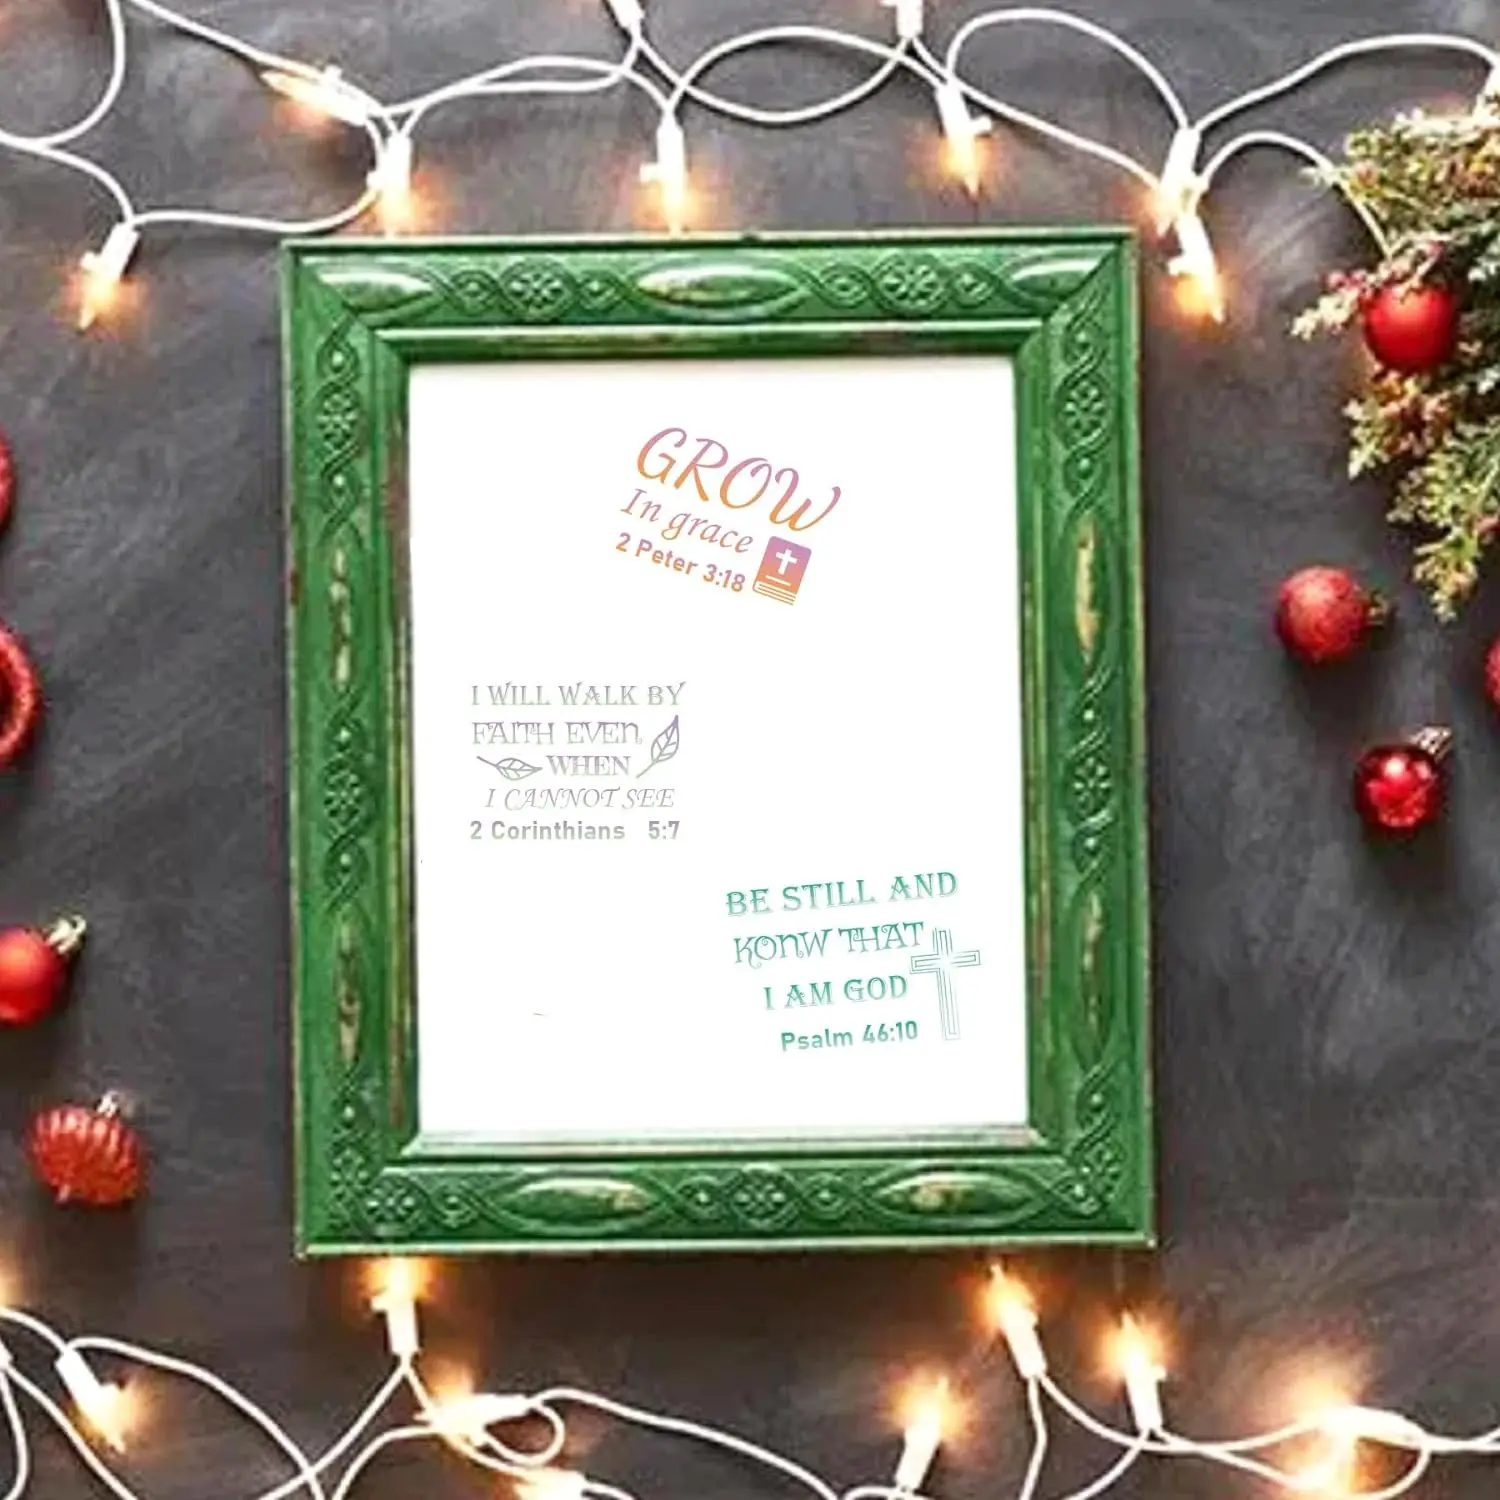 GROW
In grace
2 Peter 3:18
I WILL WALK BY
FAITH EVEN
WHEN
I CANNOT SEE
2 Corinthians 5:7
BE STILL AND
KONW THAT
I AM GOD
Psalm 46:10